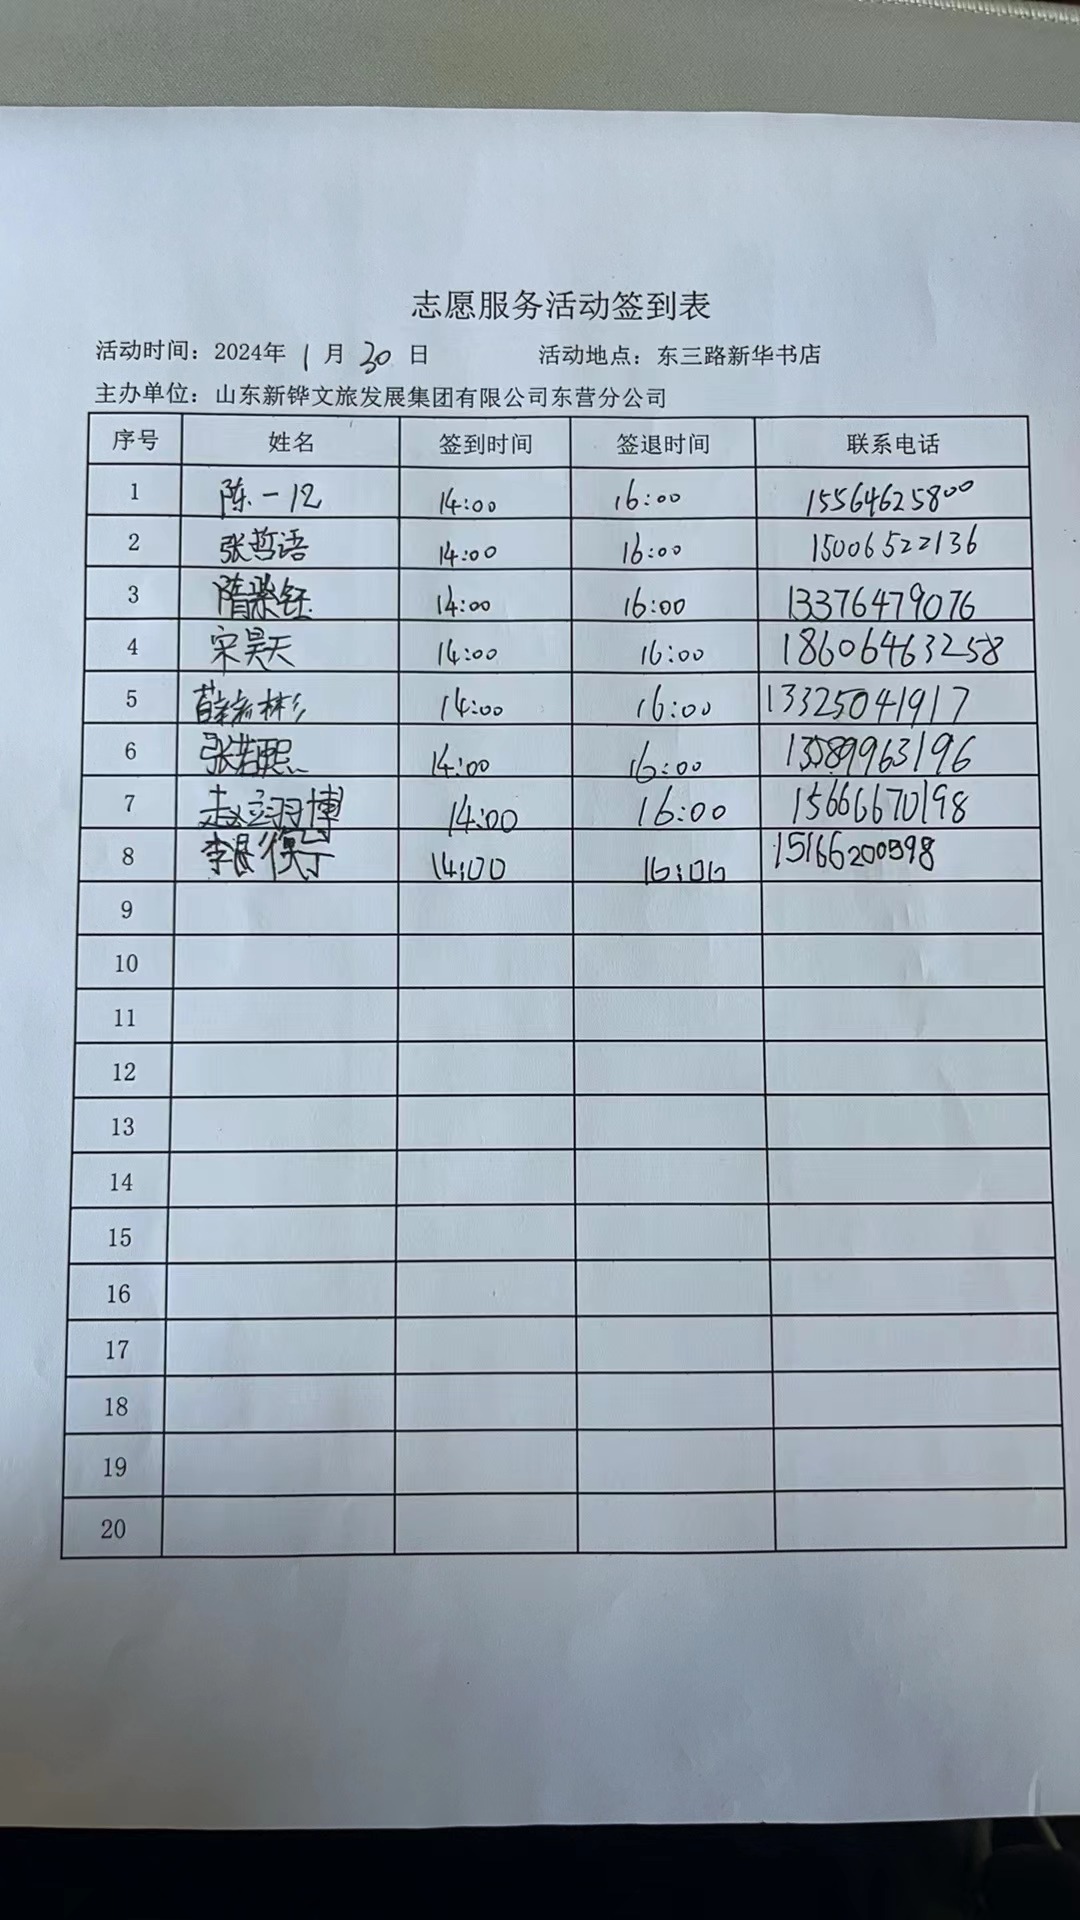 志愿服务活动签到表
活动时间：2024年 1 月 30 日 活动地点：东三路新华书店
主办单位：山东新铧文旅发展集团有限公司东营分公司
序号 姓名 签到时间 签退时间 联系电话
1 陈一 14:00 16:00 15564625800
2 张哲语 14:00 16:00 15006522136
3 隋 钰 14:00 16:00 13376479076
4 宋昊天 14:00 16:00 18606463258
5 薛 彬 14:00 16:00 13325041917
6 张若熙 14:00 16:00 13589963196
7 赵 翊博 14:00 16:00 15666670198
8 李 14:00 16:00 15166200598
9
10
11
12
13
14
15
16
17
18
19
20